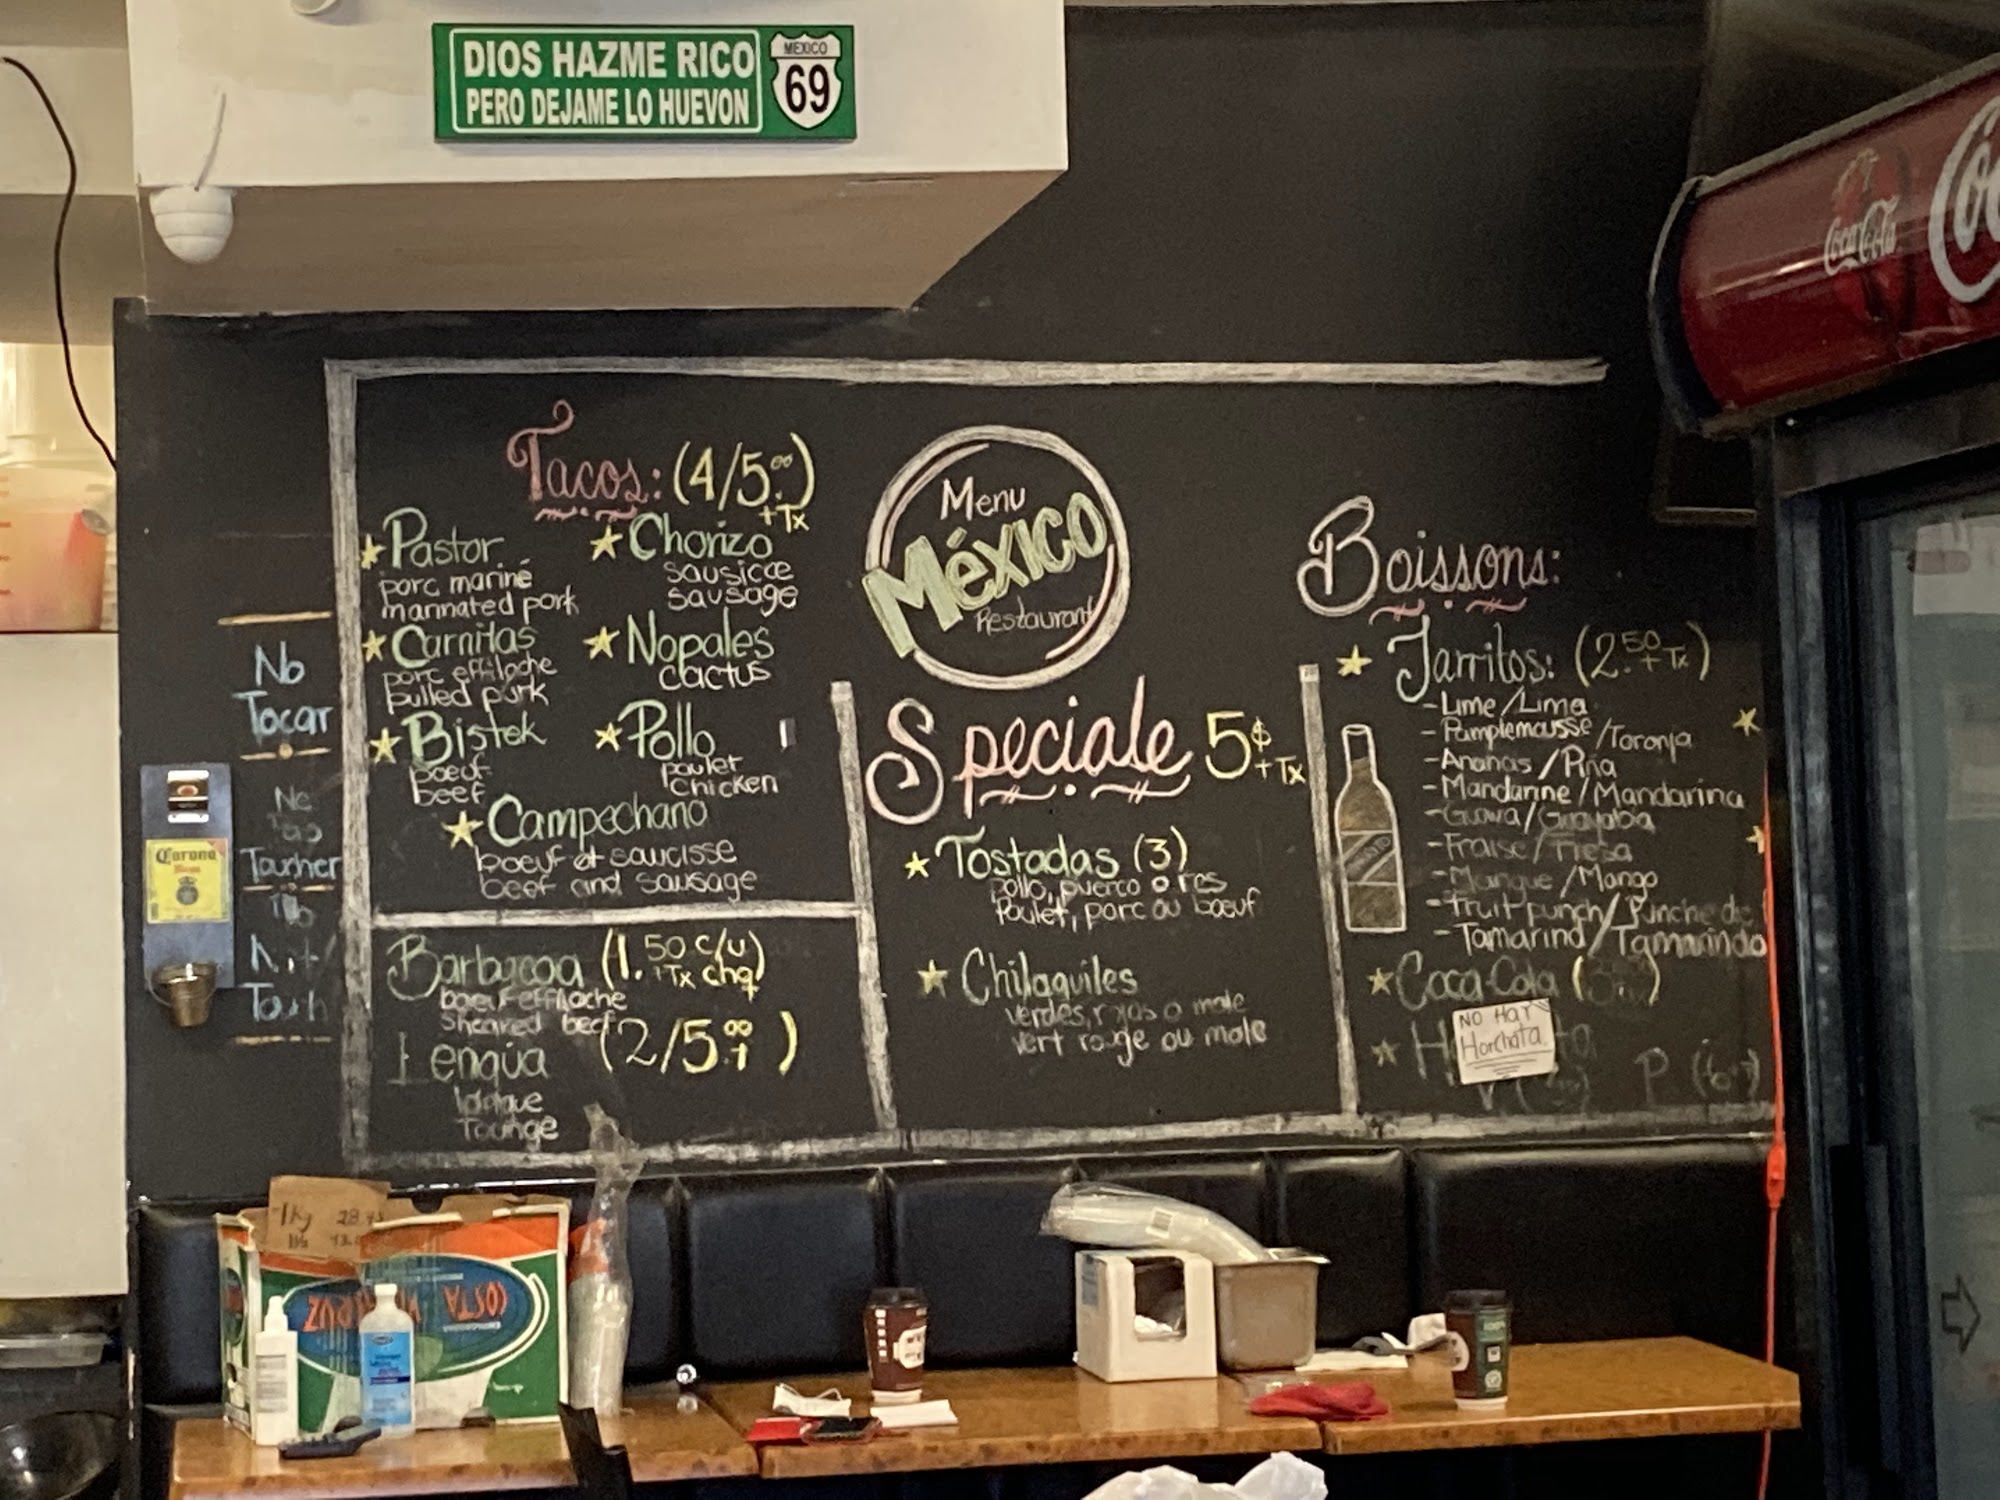 DIOS HAZME RICO
PERO DEJAME LO HUEVON
MEXICO
69
Coca-Cola
No
Tocar
Ne
Pas
Toucher
Corona
Tacos: (4/5.00)
+Tx
Pastor
porc mariné
marinated pork
Carnitas
porc effiloche
pulled pork
Bistek
boeuf
beef
Chorizo
sausicce
sausage
Nopales
cactus
Pollo
poulet
chicken
Campechano
boeuf et saucisse
beef and sausage
Barbacoa (1.50 c/u)
+Tx chq
boeuf effiloche
sheared beef
Lengua (2/5.00)
Tounge
Menu
México
Restaurant
Speciale 5$
+Tx
Tostadas (3)
pollo, puerco o res
Poulet, porc ou boeuf
Chilaquiles
verdes, rojas o mole
vert rouge ou mole
Boissons:
Jarritos: (2.50 +Tx)
-Lime/Lima
-Pamplemousse/Toronja
-Ananas/Piña
-Mandarine/Mandarina
-Guava/Guayaba
-Fraise/Fresa
-Mangue/Mango
-Fruit punch/Punche de
-Tamarind/Tamarindo
Coca-Cola
NO HAY
Horchata
1kg 28.
COSTA